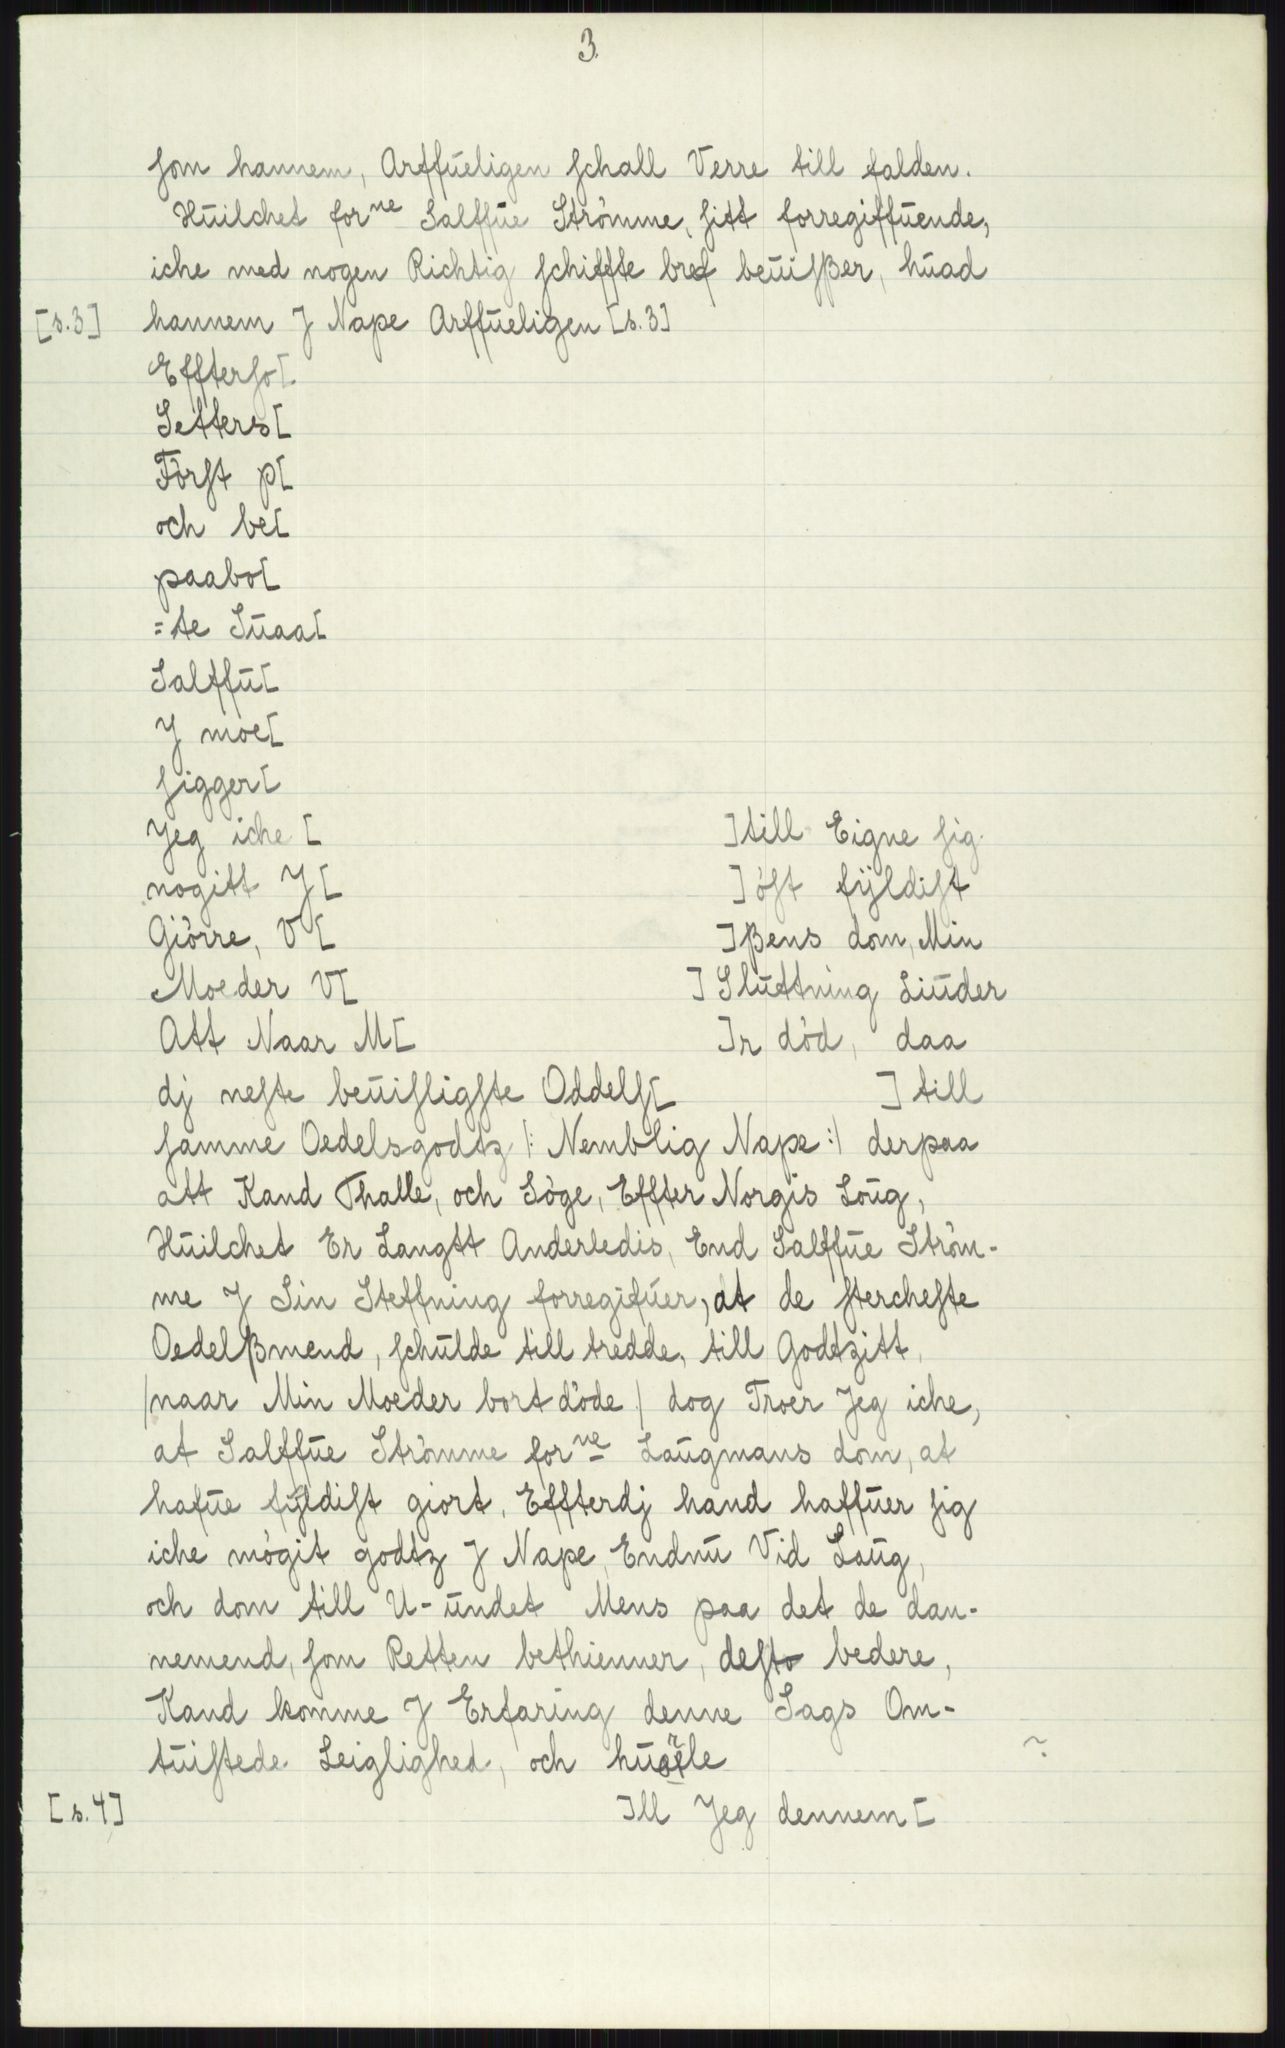 3.
som hannem, Arffueligen schall Verre till falden.
Huilchet forne Salffue Strömme, sitt forregiffuende,
iche med nogen Richtig schiffte bref beuisßer, huad
[s.3] hannem J Nape Arffueligen [s.3]
Effterso[
Setters[
Först p[
och be[
paabo[
=te Suaa[
Salffu[
J moe[
sigger[
Jeg iche [ ]till Eigne sig
nogitt J[ ]öst fÿldist
Giörre, V[ ]ßens dom, Min
Moeder V[ ]Sluttning Liuder
Att Naar M[ ]r död, daa
dj neste beuisligste Oddels[ ]till
samme Oedelsgodtz |: Nemblig Nape :| derpaa
att Kand Thalle, och Söge, Effter Norgis Loug,
Huilchet Er Langtt Anderledis, End Salffue Ström-
me J Sin Steffning forregifuer, at de stercheste
Oedelßmend, schulde till tredde, till Godtzitt,
|naar Min Moeder bort döde| dog Troer Jeg iche,
at Salffue Strömme forne Laugmans dom, at
hafue fÿldist giort, Effterdj hand haffuer sig
iche mögit godtz J Nape, Endnu Vid Laug,
och dom till U-undet Mens paa det de dan-
nemend, som Retten bethienner, desto bedere,
Kand komme J Erfaring denne Sags Om-
tuistede Leiglighed, och
[s.4] ]ll Jeg dennem [